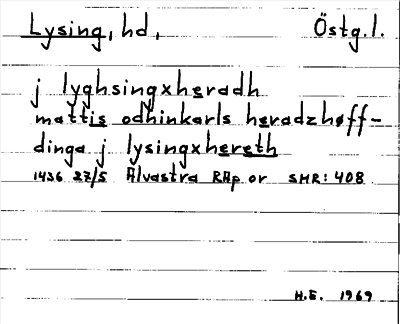 Lysing, hd, Östg.l.
j lyghsingxheradh
mattis odhinkarls heradzhøff-
dinga j lysingxhereth
1436 27/5 Alvastra RAp or SMR: 408
H.E. 1969